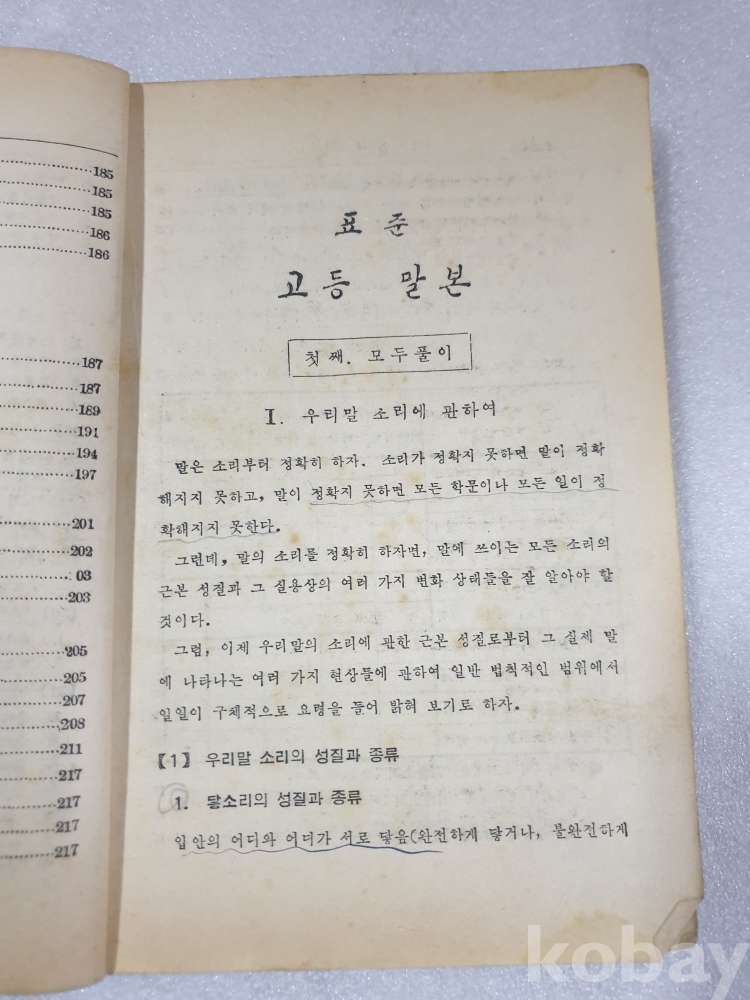 185
185
185
186
186
187
187
189
191
194
197
201
202
03
203
205
205
207
208
211
217
217
217
217
표준
고등 말본
첫째. 모두풀이
I. 우리말 소리에 관하여
말은 소리부터 정확히 하자. 소리가 정확지 못하면 말이 정확
해지지 못하고, 말이 정확지 못하면 모든 학문이나 모든 일이 정
확해지지 못한다.
그런데, 말의 소리를 정확히 하자면, 말에 쓰이는 모든 소리의
근본 성질과 그 실용상의 여러 가지 변화 상태들을 잘 알아야 할
것이다.
그럼, 이제 우리말의 소리에 관한 근본 성질로부터 그 실제 말
에 나타나는 여러 가지 현상들에 관하여 일반 법칙적인 범위에서
일일이 구체적으로 요령을 들어 밝혀 보기로 하자.
【1】 우리말 소리의 성질과 종류
1. 닿소리의 성질과 종류
입안의 어디와 어디가 서로 닿음(완전하게 닿거나, 불완전하게
kobay